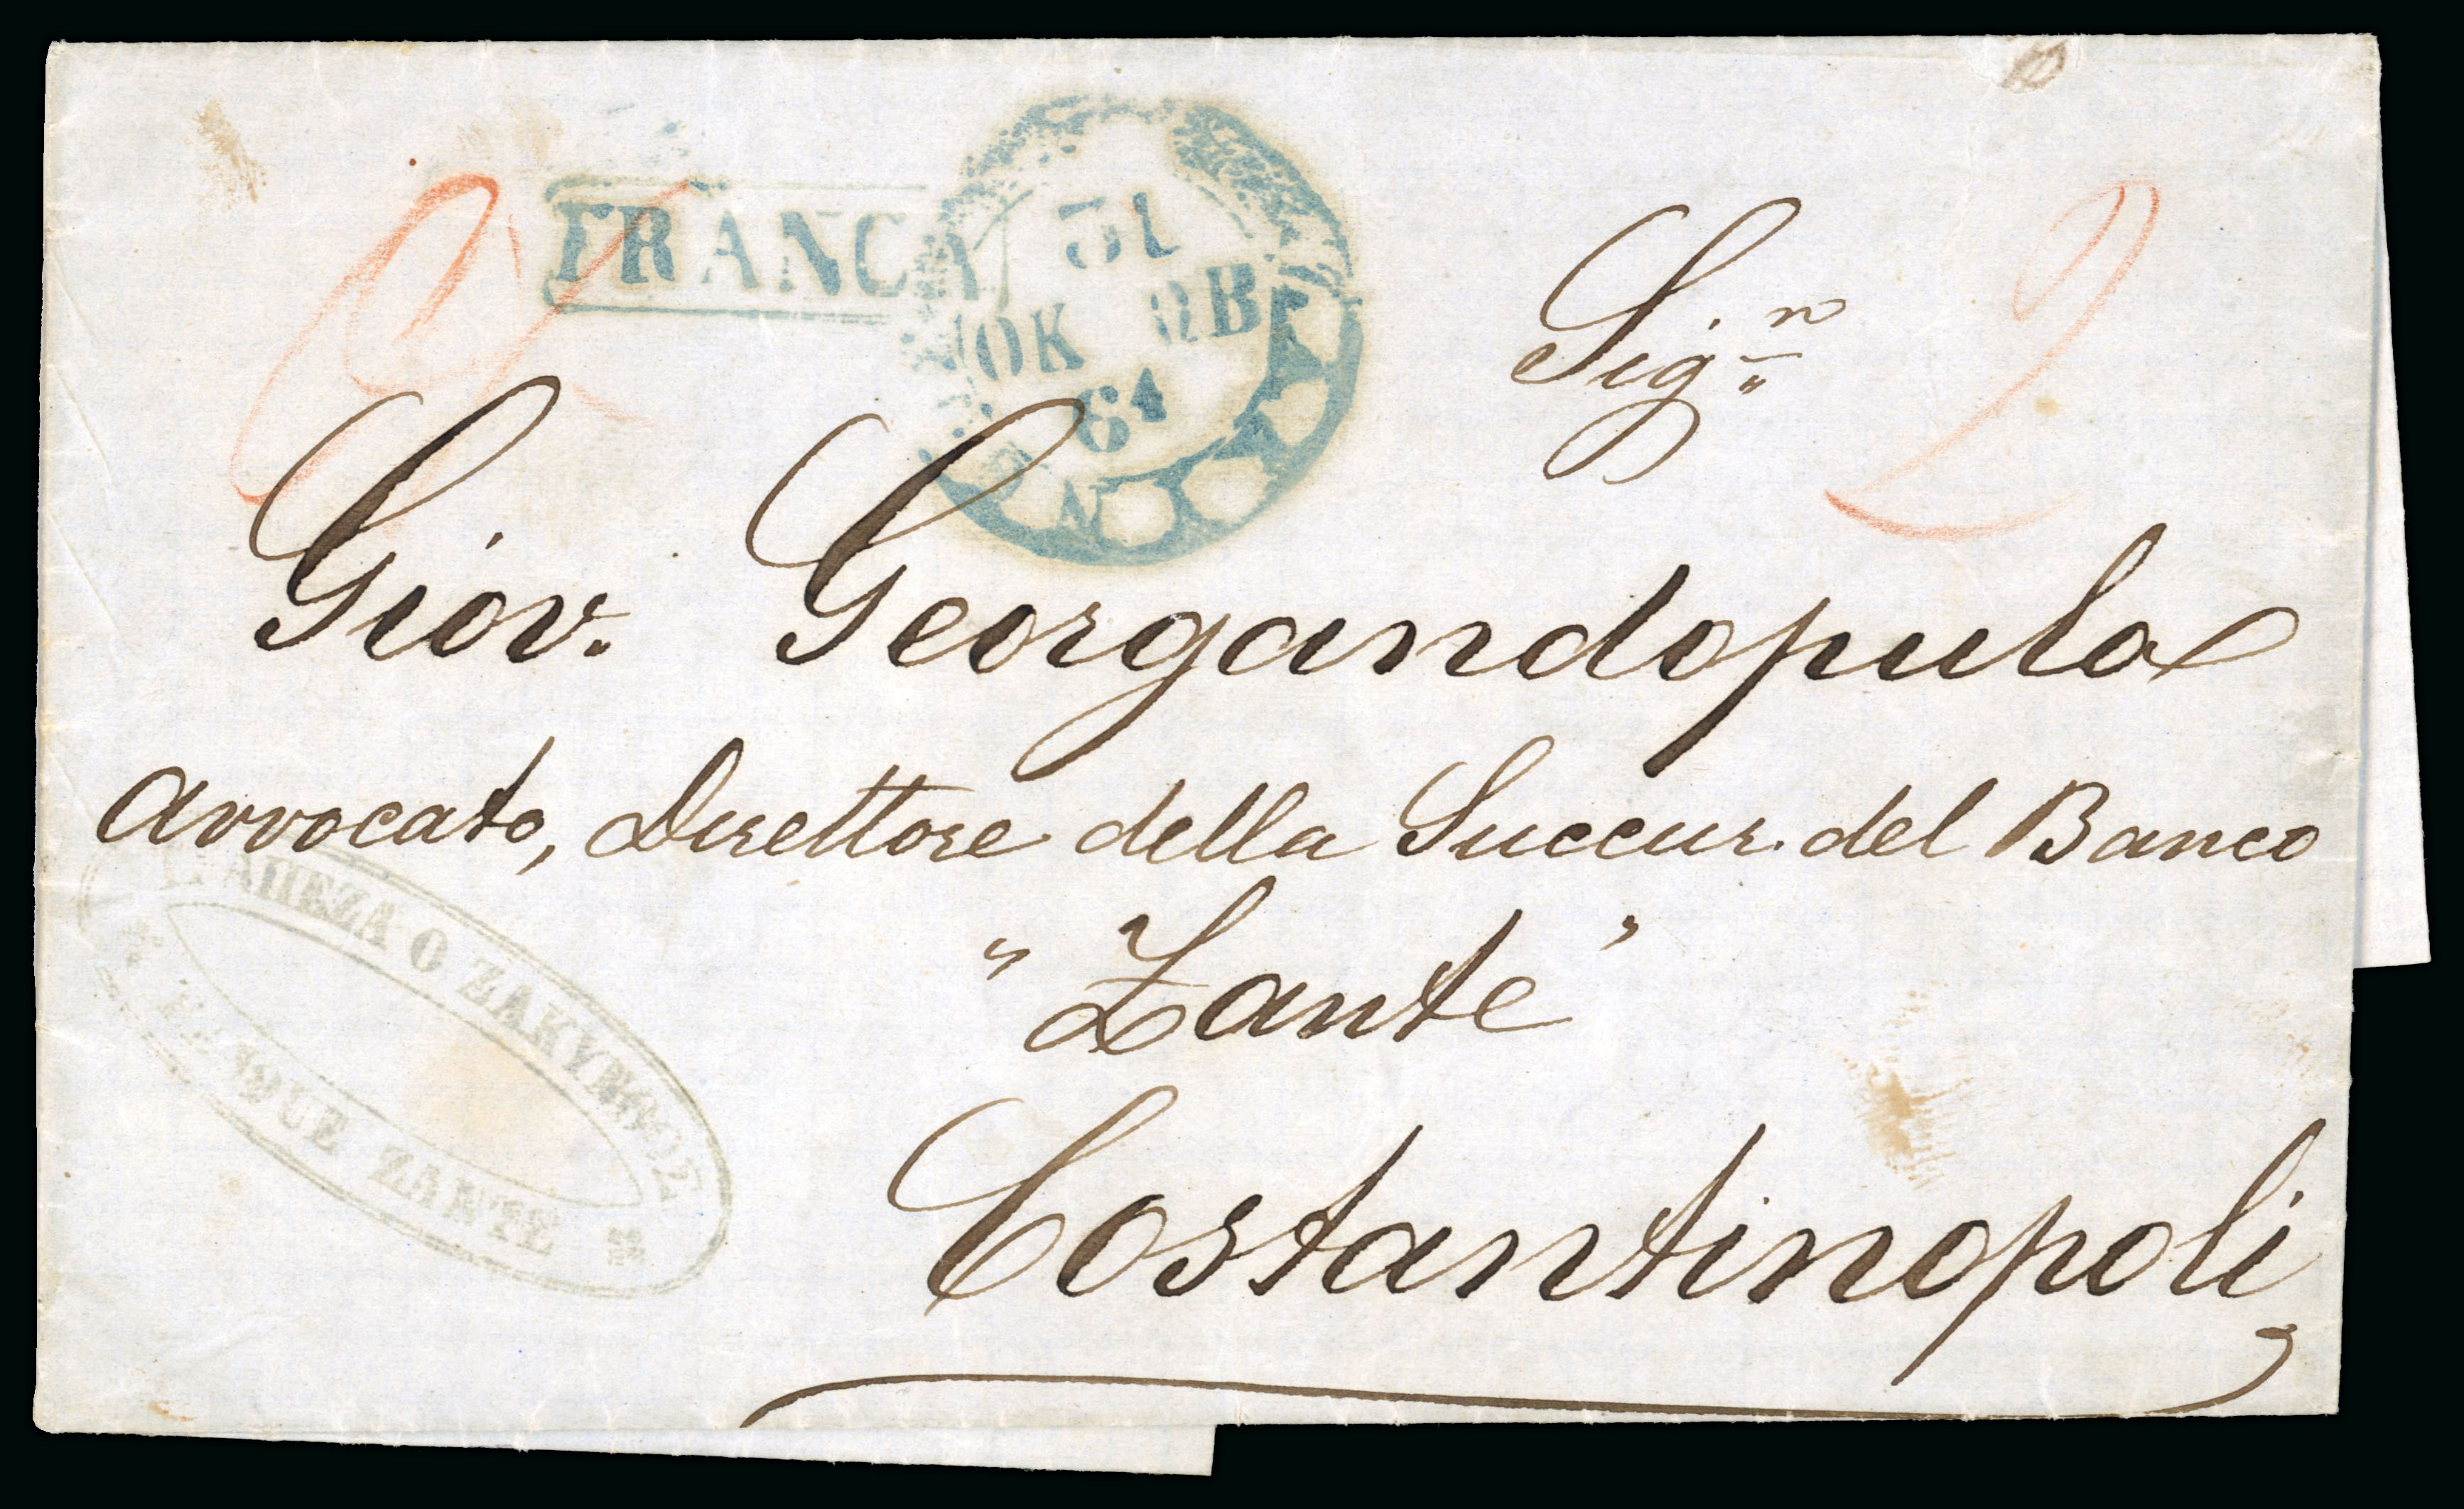 FRANCA
31
ΟΚ ΩΒ
64
2
Sig.n
Giov. Georgandopulo
Avvocato, Direttore della Succur. del Banco
"Zante"
Costantinopoli
ΤΡΑΠΕΖΑ Ο ΖΑΚΥΝΘΟΣ
BANQUE ZANTE